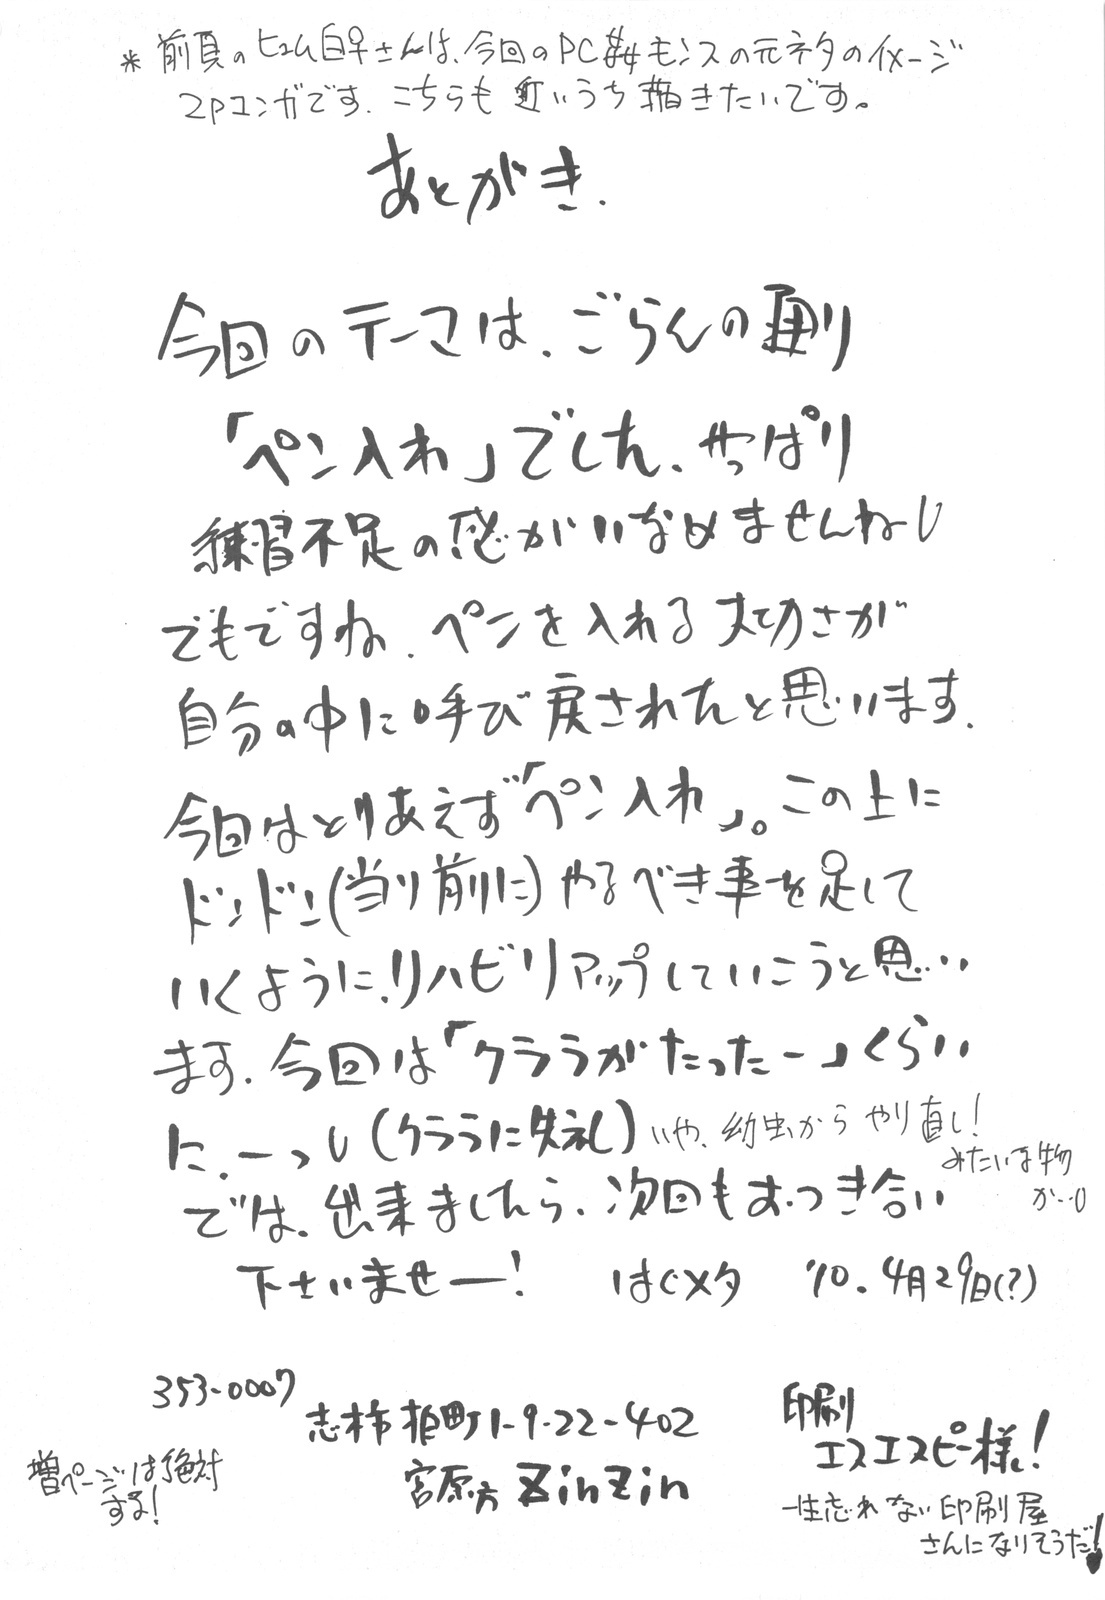 *前頁のヒュム白♀さんは、今回のPC モンスの元ネタのイメージ
2Pコンガです。こちらも近いうち描きたいです。
あとがき.
今回のテーマは、ごらんの通り
「ペン入れ」でした、やっぱり
練習不足の感がいなめませんねーし
でもですね、ペンを入れる大切さが
自分の中に呼び戻されたと思います.
今回はとりあえず「ペン入れ」。この上に
ドンドン(当り前に)やるべき事を足して
いくように、リハビリアップしていこうと思い
ます、今回は「クララがたったー」くらい
に、ーっし(クララに失礼)いや、幼虫からやり直し!
みたいな物
か…
では、出来ましたら、次回もおつき合い
下さいませー! はぐメタ '10.4月29日(?)
353-0007
志木市柏町1-9-22-402
宮原方 ZinZin
増ページは絶対
する!
印刷
エスエスピー様!
一生忘れない印刷屋
さんになりそうだ!